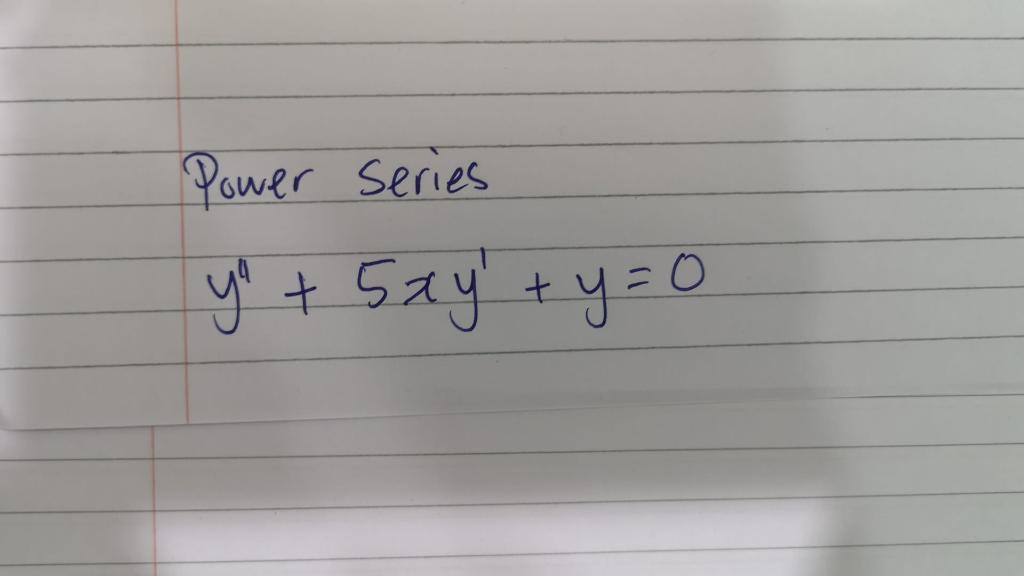 Power Series
y" + 5xy' + y = 0